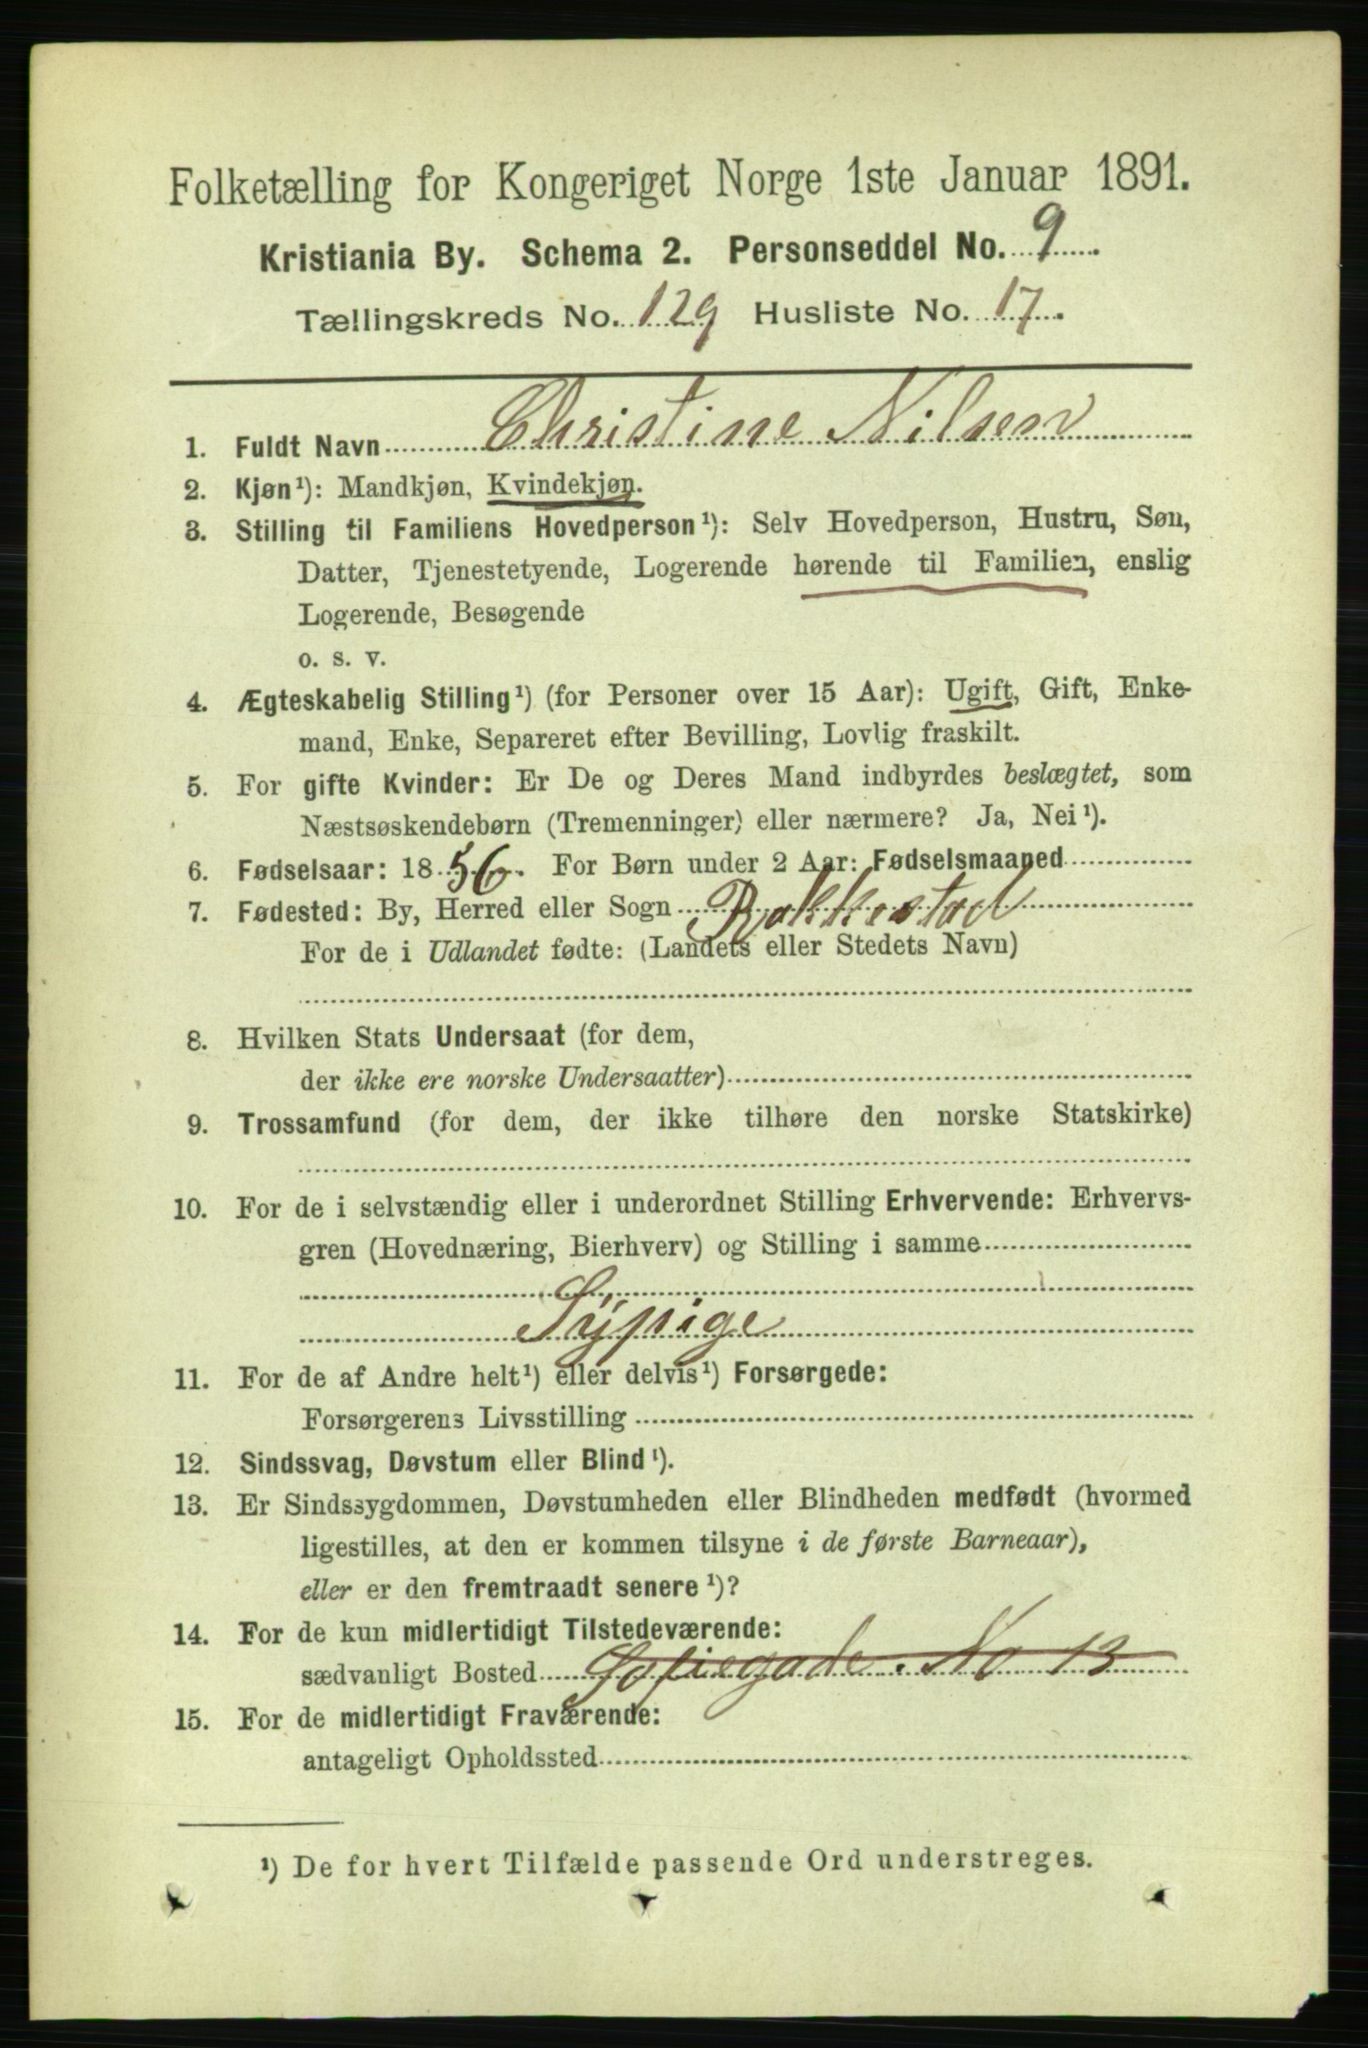 Folketælling for Kongeriget Norge 1ste Januar 1891.
Kristiania By. Schema 2. Personseddel No. 9.
Tællingskreds No. 129 Husliste No. 17.
1. Fuldt Navn Christine Nilsen
2. Kjøn¹): Mandkjøn, Kvindekjøn.
3. Stilling til Familiens Hovedperson¹): Selv Hovedperson, Hustru, Søn,
Datter, Tjenestetyende, Logerende hørende til Familien, enslig
Logerende, Besøgende
o. s. v.
4. Ægteskabelig Stilling¹) (for Personer over 15 Aar): Ugift, Gift, Enke-
mand, Enke, Separeret efter Bevilling, Lovlig fraskilt.
5. For gifte Kvinder: Er De og Deres Mand indbyrdes beslægtet, som
Næstsøskendebørn (Tremenninger) eller nærmere? Ja, Nei¹).
6. Fødselsaar: 1856. For Børn under 2 Aar: Fødselsmaaned
7. Fødested: By, Herred eller Sogn Rakkestad
For de i Udlandet fødte: (Landets eller Stedets Navn)
8. Hvilken Stats Undersaat (for dem,
der ikke ere norske Undersaatter)
9. Trossamfund (for dem, der ikke tilhøre den norske Statskirke)
10. For de i selvstændig eller i underordnet Stilling Erhvervende: Erhvervs-
gren (Hovednæring, Bierhverv) og Stilling i samme
Sypige
11. For de af Andre helt¹) eller delvis¹) Forsørgede:
Forsørgerens Livsstilling
12. Sindssvag, Døvstum eller Blind¹).
13. Er Sindssygdommen, Døvstumheden eller Blindheden medfødt (hvormed
ligestilles, at den er kommen tilsyne i de første Barneaar),
eller er den fremtraadt senere¹)?
14. For de kun midlertidigt Tilstedeværende:
sædvanligt Bosted Sofiegade. No 13
15. For de midlertidigt Fraværende:
antageligt Opholdssted
¹) De for hvert Tilfælde passende Ord understreges.